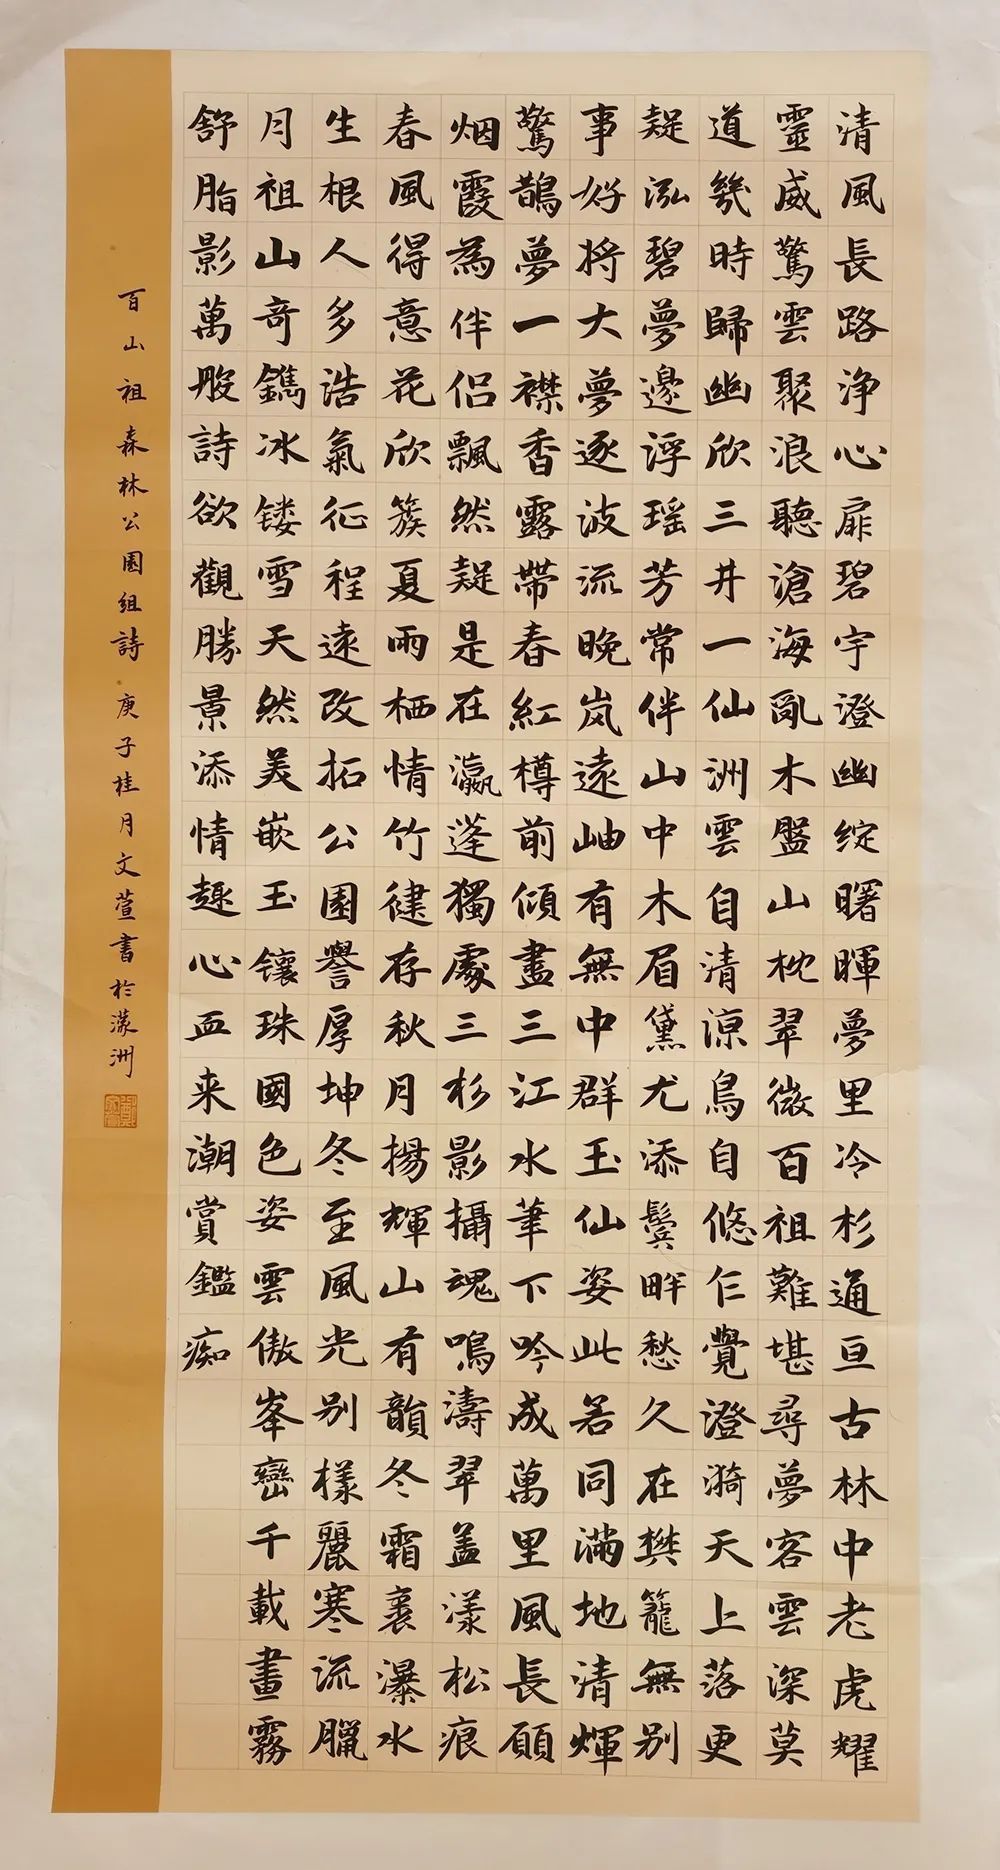 清風長路净心扉碧宇澄幽綻曙暉夢里冷杉通亘古林中老虎耀
靈威驚雲聚浪聽滄海亂木盤山枕翠微百祖難堪尋夢客雲深莫
道幾時歸幽欣三井一仙洲雲自清涼鳥自悠仁覺澄漪天上落更
疑泓碧夢邊浮瑶芳常伴山中木眉黛尤添鬓畔愁久在樊籠無别
事好將大夢逐波流晚岚遠岫有無中群玉仙姿此若同滿地清輝
驚鵲夢一襟香露帶春紅樽前傾盡三江水筆下吟成萬里風長願
烟霞為伴侣飄然疑是在瀛蓬獨處三杉影攝魂鳴濤翠盖漾松痕
春風得意花欣簇夏雨栖情竹健存秋月揚輝山有韻冬霜裹瀑水
生根人多浩氣征程遠改拓公園譽厚坤冬至風光别樣麗寒流臘
月祖山奇鐫冰镂雪天然美嵌玉镶珠國色姿雲傲峯巒千載畫霧
舒脂影萬般詩欲觀勝景添情趣心血来潮賞鑑痴
百山祖森林公園组詩 庚子桂月文萱書於濛洲